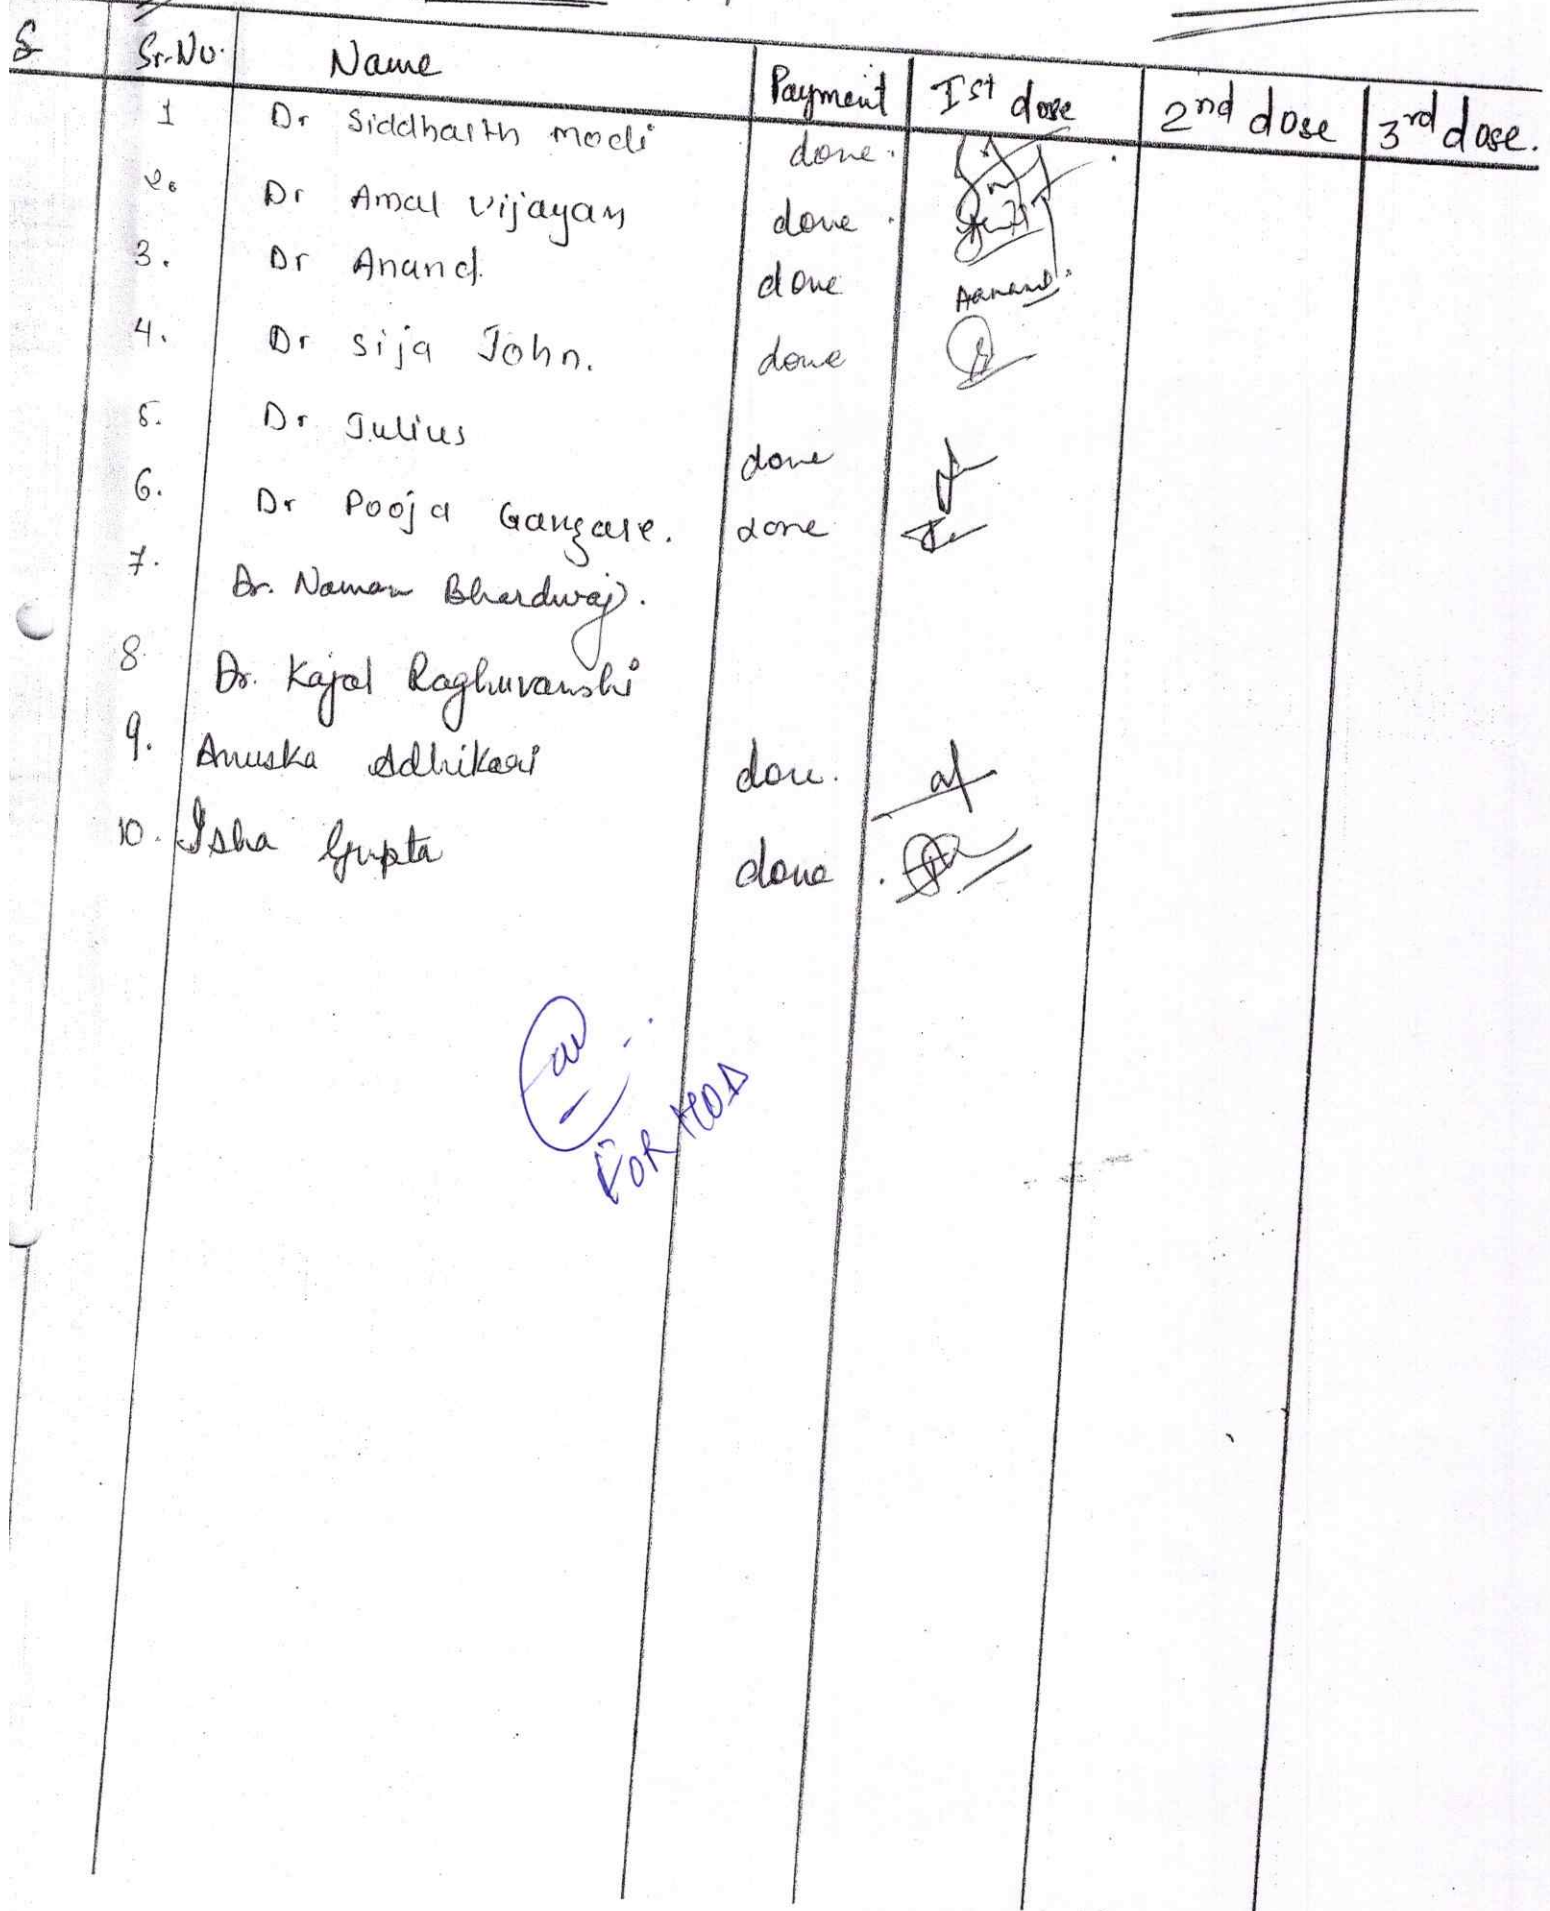 Sr.No. Name Payment Ist dose 2nd dose 3rd dose.
1 Dr Siddharth modi done.
2. Dr Amal vijayan done.
3. Dr Anand done Aanand.
4. Dr sija John. done
5. Dr Julius done
6. Dr Pooja Gangare. done
7. Dr. Naman Bhardwaj.
8 Dr. Kajal Raghuvanshi
9. Anuska Adhikari done.
10. Isha Gupta done.
FOR HOD